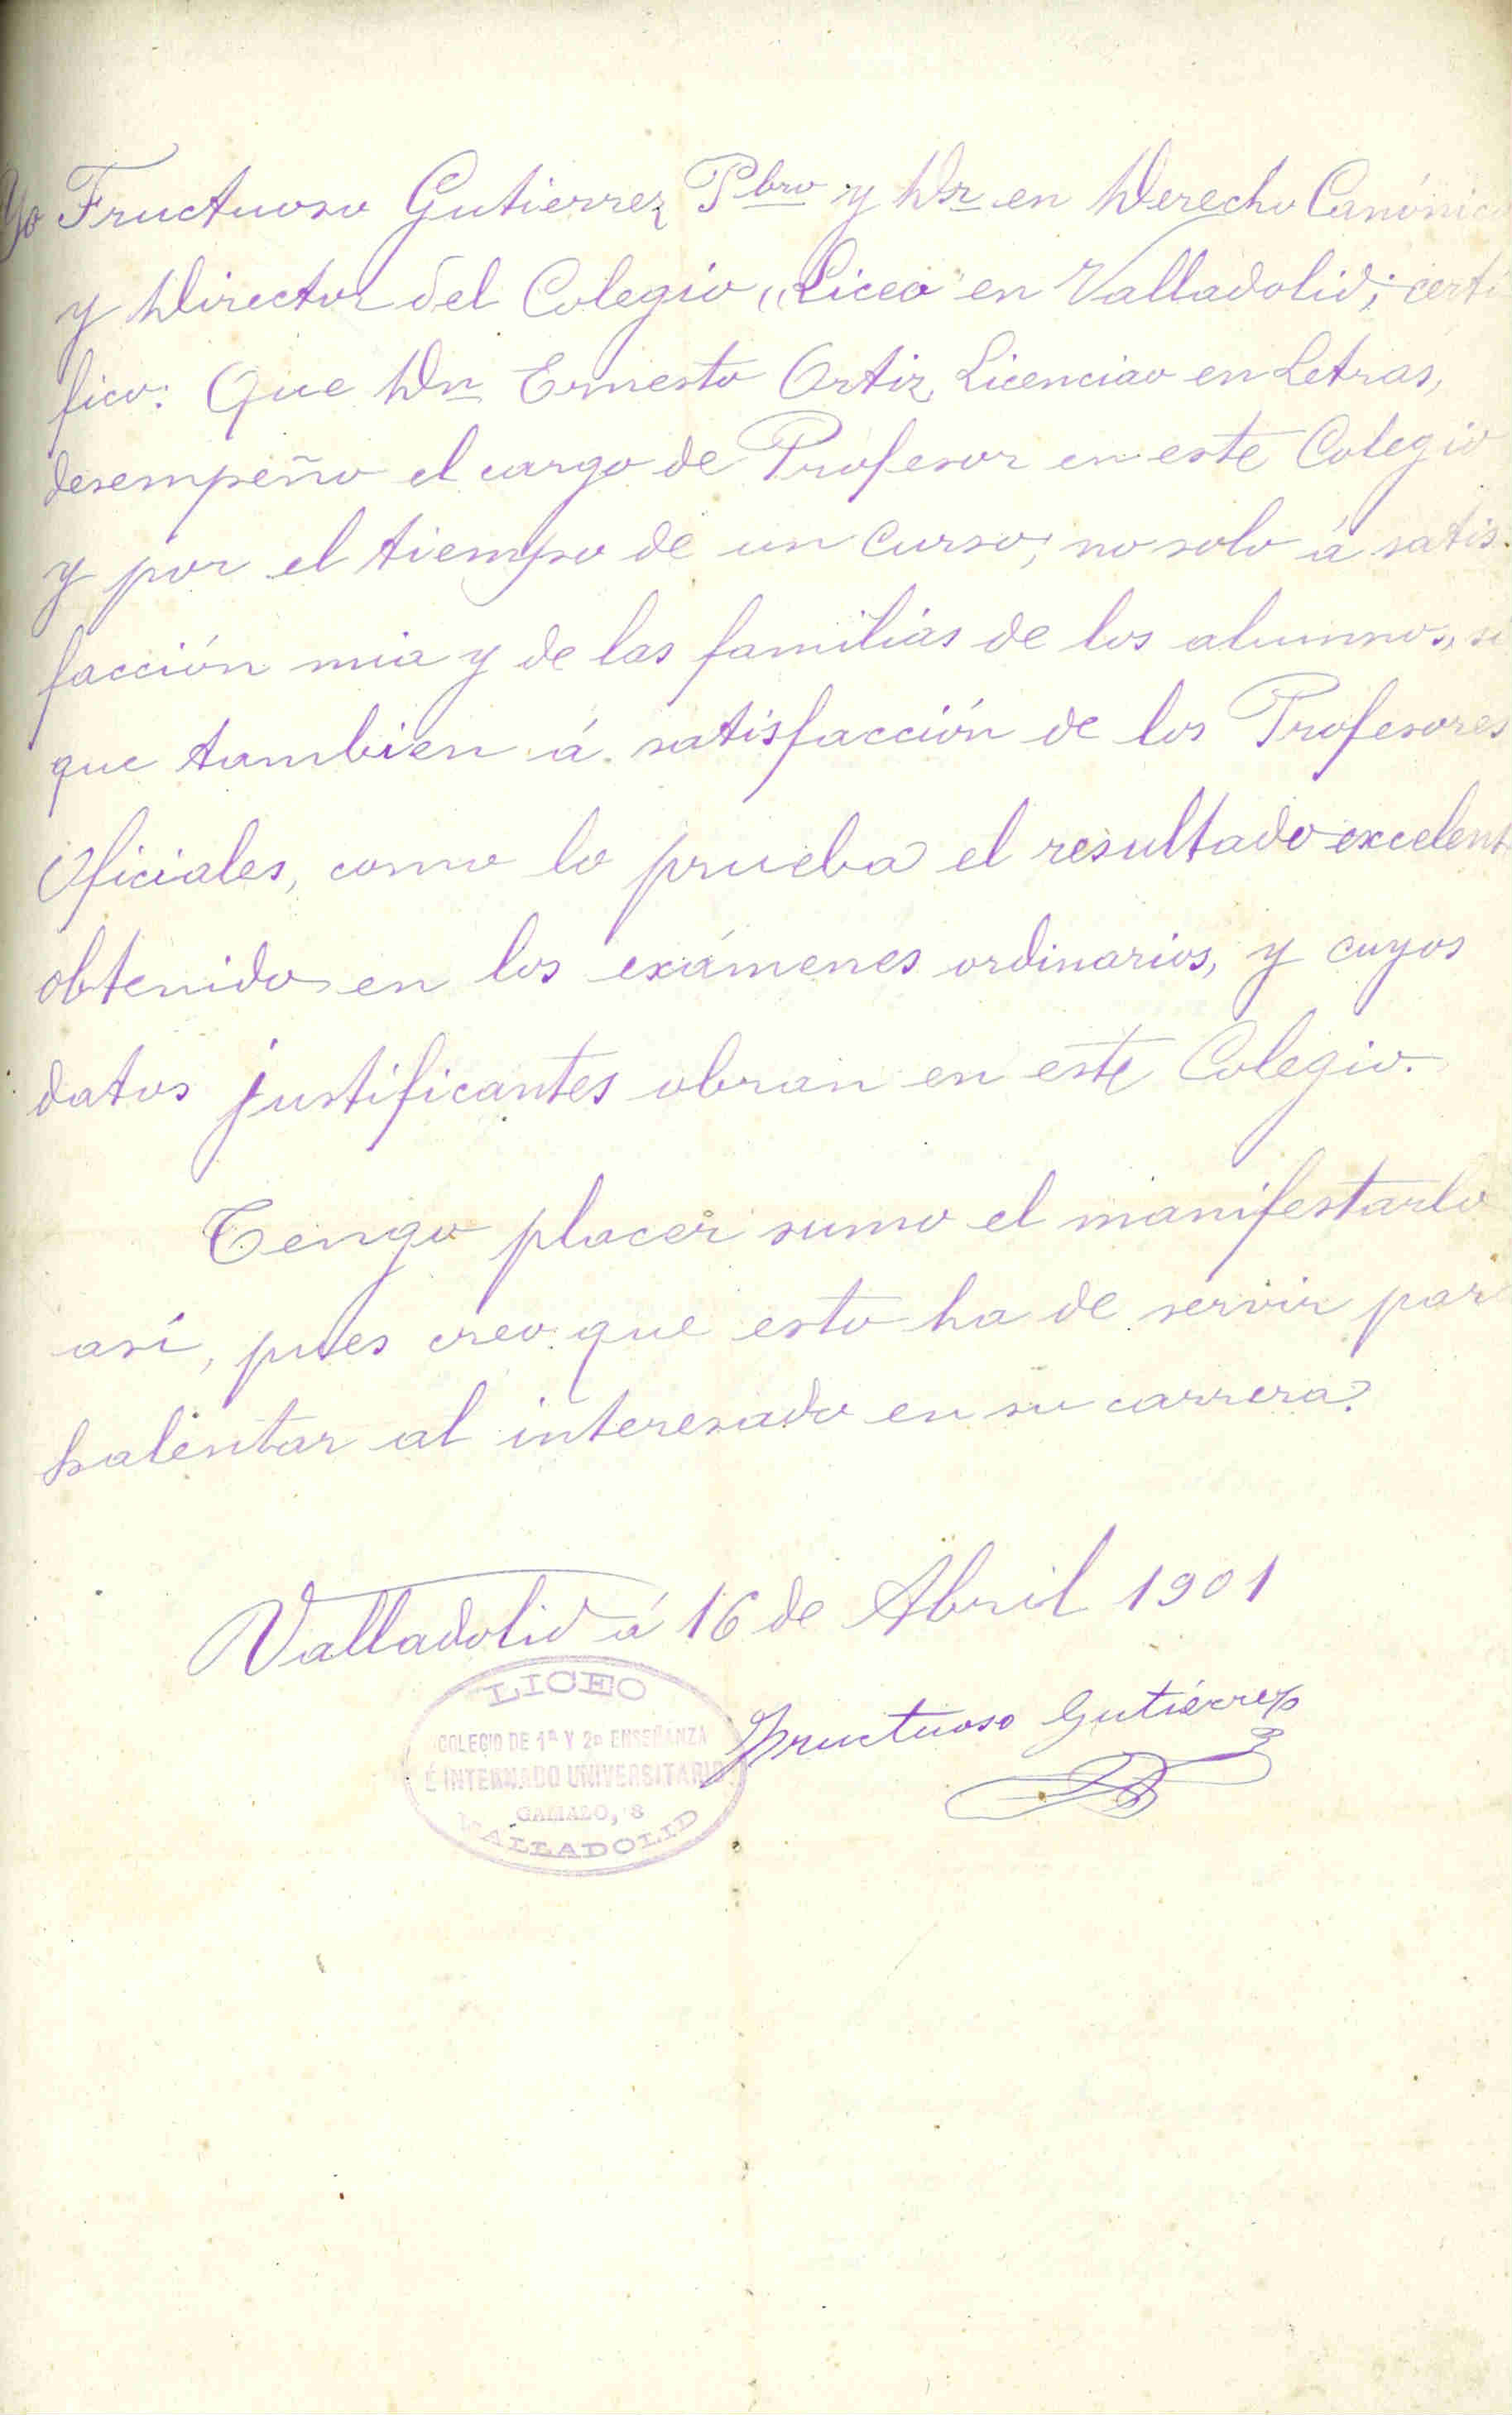 Yo Fructuoso Gutierrez Pbro y Dr en Derecho Canónico
y Director del Colegio „Liceo" en Valladolid; certi
fico: Que Dn Ernesto Ortiz, Licenciao en Letras,
desempeño el cargo de Profesor en este Colegio
y por el tiempo de un curso; no solo á satis-
facción mia y de las familias de los alumnos, si
que tambien á satisfacción de los Profesores
Oficiales, como lo prueba el resultado excelent
obtenido en los exámenes ordinarios, y cuyos
datos justificantes obran en este Colegio.
Tengo placer sumo el manifestarlo
así, pues creo que esto ha de servir para
halentar al interesado en su carrera.
Valladolid á 16 de Abril 1901
Fructuoso Gutiérrez
LICEO
COLEGIO DE 1ª Y 2ª ENSEÑANZA
É INTERNADO UNIVERSITARIO
GAMAZO, 8
VALLADOLID